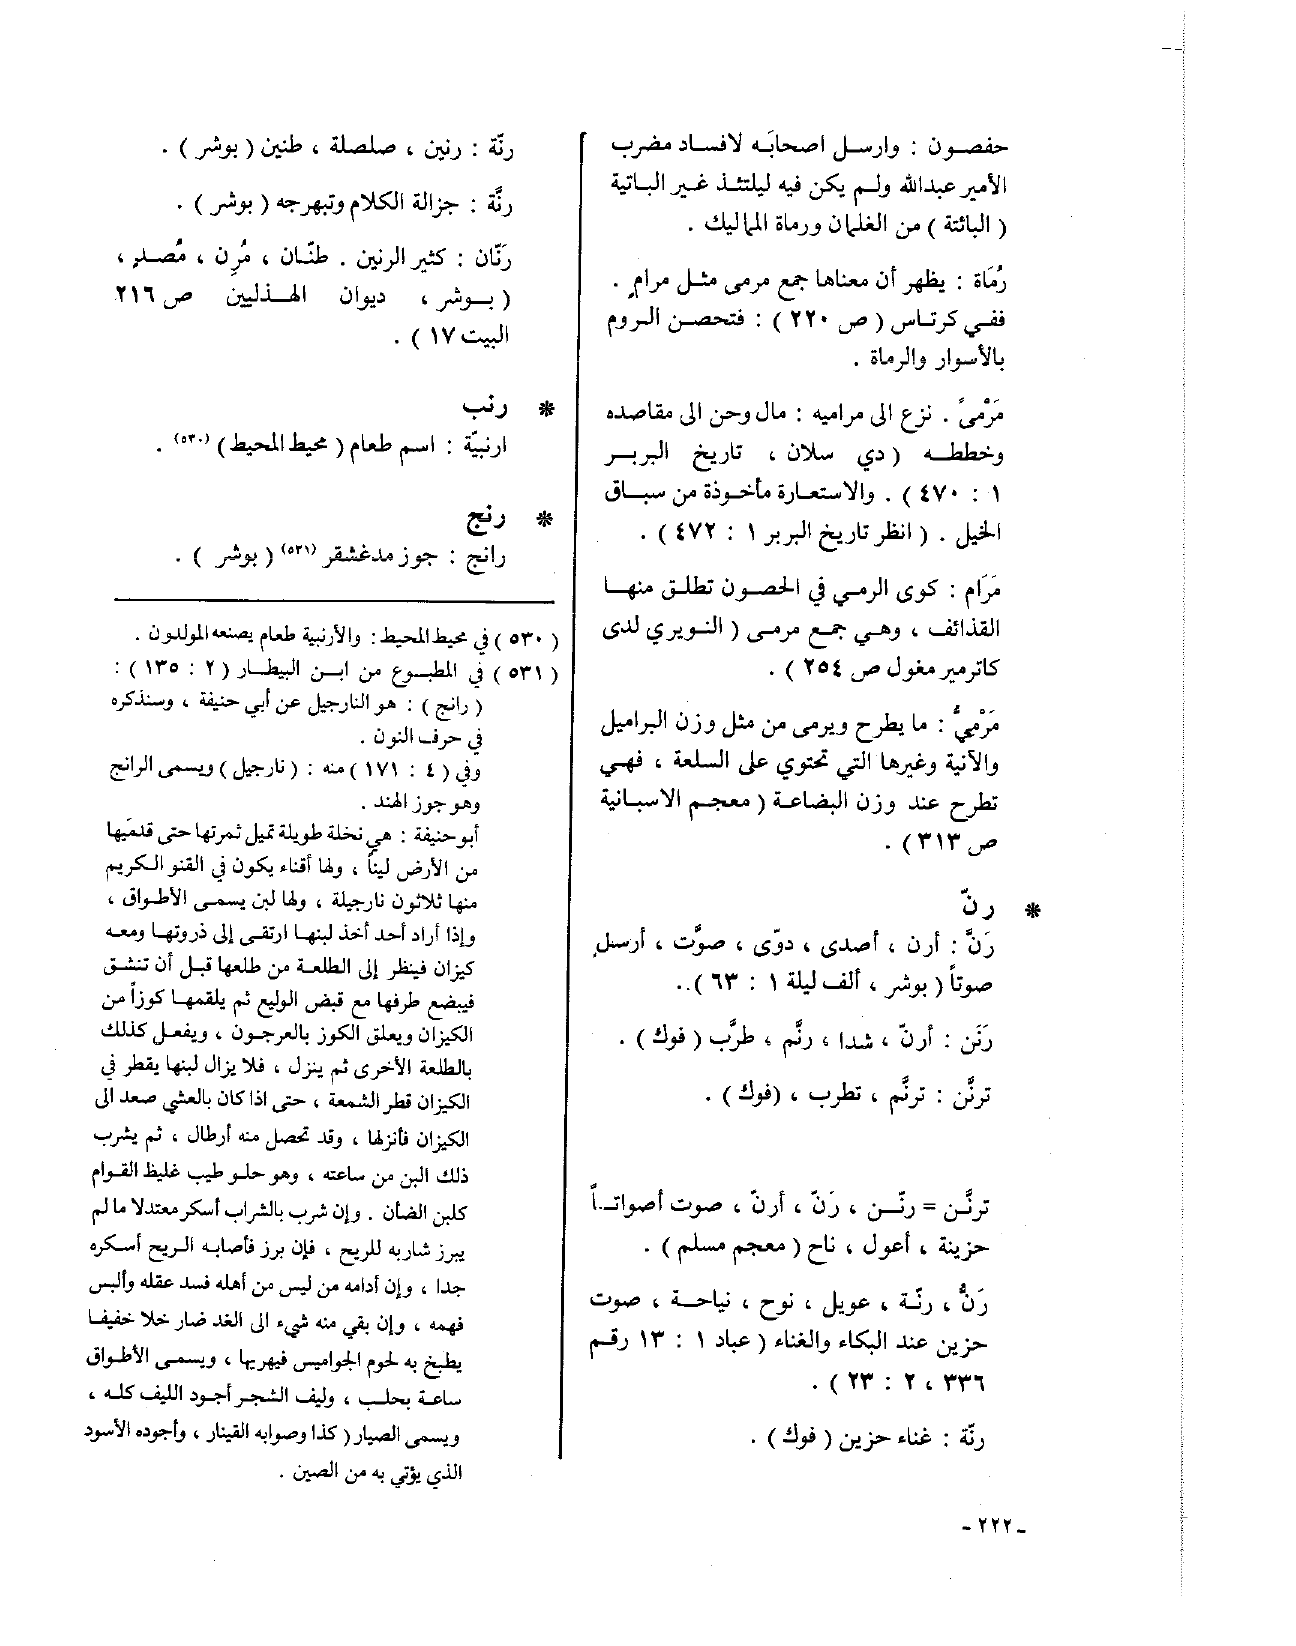 حفصون : وارسل اصحابَه لافساد مضرب
الأمير عبدالله ولم يكن فيه ليلتئذ غير الباتية
( البائتة ) من الغلمان ورماة المماليك .
رُمَاة : يظهر أن معناها جمع مرمى مثل مرامٍ .
ففي كرتاس ( ص ٢٢٠ ) : فتحصن الروم
بالأسوار والرماة .
مَرْمىً . نزع الى مراميه : مال وحن الى مقاصده
وخططه ( دي سلان ، تاريخ البربر
١ : ٤٧٠ ) . والاستعارة مأخوذة من سباق
الخيل . ( انظر تاريخ البربر ١ : ٤٧٢ ) .
مَرَام : كوى الرمي في الحصون تطلق منها
القذائف ، وهي جمع مرمى ( النويري لدى
كاترمير مغول ص ٢٥٤ ) .
مَرْميُّ : ما يطرح ويرمى من مثل وزن البراميل
والآنية وغيرها التي تحتوي على السلعة ، فهي
تطرح عند وزن البضاعة ( معجم الاسبانية
ص ٣١٣ ) .
* رنّ
رَنَّ : أرن ، أصدى ، دوّى ، صوَّت ، أرسل
صوتاً ( بوشر ، ألف ليلة ١ : ٦٣ ) ..
رَنَّن : أرنّ ، شدا ، رنَّم ، طرَّب ( فوك ) .
ترنَّن : ترنَّم ، تطرب ، (فوك ) .
ترنَّن = رنّن ، رَنّ ، أرنّ ، صوت أصواتاً
حزينة ، أعول ، ناح ( معجم مسلم ) .
رَنُّ ، رنّة ، عويل ، نوح ، نياحة ، صوت
حزين عند البكاء والغناء ( عباد ١ : ١٣ رقم
٣٣٦ ، ٢ : ٢٣ ) .
رنّة : غناء حزين ( فوك ) .
رنّة : رنين ، صلصلة ، طنين ( بوشر ) .
رنَّة : جزالة الكلام وتبهرجه ( بوشر ) .
رَنّان : كثير الرنين . طنّان ، مُرِن ، مُصدٍ ،
( بوشر ، ديوان الهذليين ص ٢١٦
البيت ١٧ ) .
* رنب
ارنبيّة : اسم طعام ( محيط المحيط ) (٥٣٠) .
* رنج
رانج : جوز مدغشقر (٥٣١) ( بوشر ) .
( ٥٣٠ ) في محيط المحيط : والأرنبية طعام يصنعه المولدون .
( ٥٣١ ) في المطبوع من ابن البيطار ( ٢ : ١٣٥ ) :
( رانج ) : هو النارجيل عن أبي حنيفة ، وسنذكره
في حرف النون .
وفي ( ٤ : ١٧١ ) منه : ( نارجيل ) ويسمى الرانج
وهو جوز الهند .
أبو حنيفة : هي نخلة طويلة تميل ثمرتها حتى قدميها
من الأرض ليناً ، ولها أقناء يكون في القنو الكريم
منها ثلاثون نارجيلة ، ولها لبن يسمى الأطواق ،
وإذا أراد أحد أخذ لبنها ارتقى إلى ذروتها ومعه
كيزان فينظر إلى الطلعة من طلعها قبل أن تنشق
فيبضع طرفها مع قبض الوليع ثم يلقمها كوزاً من
الكيزان ويعلق الكوز بالعرجون ، ويفعل كذلك
بالطلعة الأخرى ثم ينزل ، فلا يزال لبنها يقطر في
الكيزان قطر الشمعة ، حتى اذا كان بالعشي صعد الى
الكيزان فأنزلها ، وقد تحصل منه أرطال ، ثم يشرب
ذلك البن من ساعته ، وهو حلو طيب غليظ القوام
كلبن الضان . وإن شرب بالشراب أسكر معتدلا ما لم
يبرز شاربه للريح ، فإن برز فأصابه الريح أسكره
جدا ، وإن أدامه من ليس من أهله فسد عقله وألبس
فهمه ، وإن بقي منه شيء الى الغد ضار خلا خفيفا
يطبخ به لحوم الجواميس فيهريها ، ويسمى الأطواق
ساعة يحلب ، وليف الشجر أجود الليف كله ،
ويسمى الصيار ( كذا وصوابه القينار ، وأجوده الأسود
الذي يؤتي به من الصين .
- ٢٢٢ -